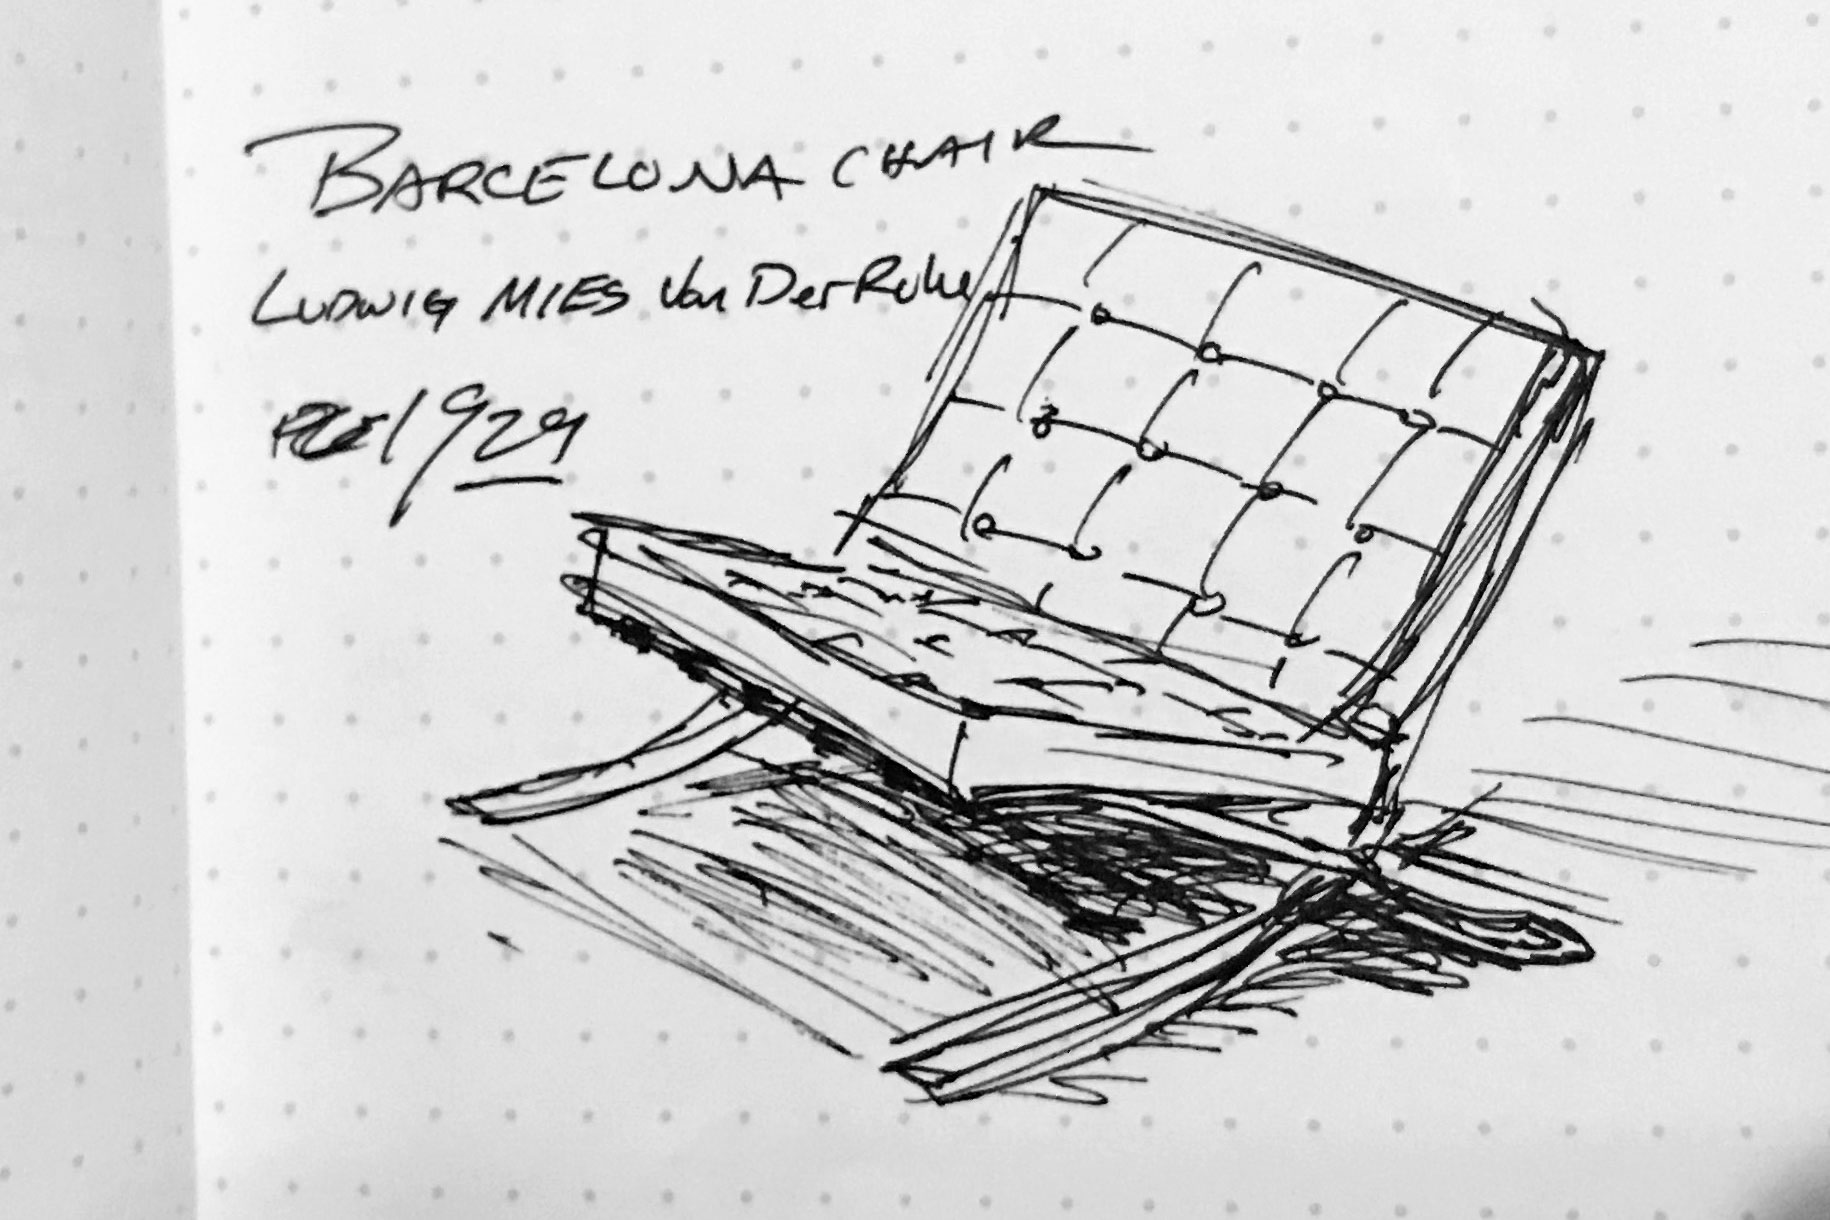 BARCELONA CHAIR
LUDWIG MIES Van Der Rohe
1929